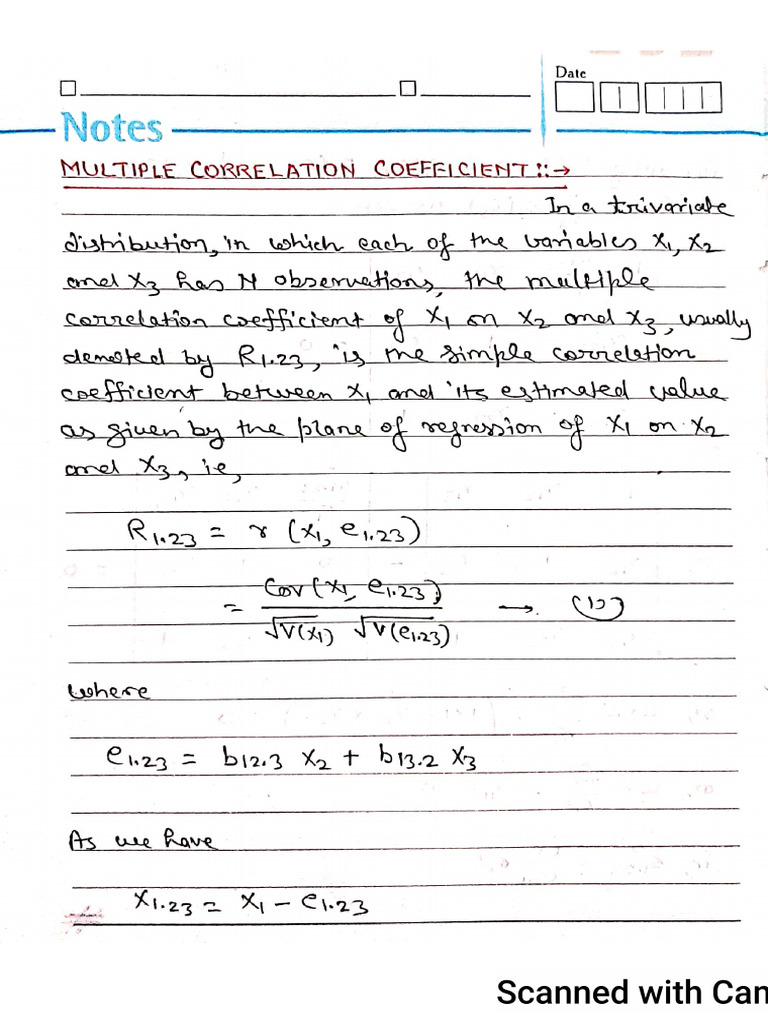 Date
Notes
MULTIPLE CORRELATION COEFFICIENT ::→
In a trivariate
distribution, in which each of the variables X1, X2
and X3 has N observations, the multiple
correlation coefficient of X1 on X2 and X3, usually
denoted by R1.23, is the simple correlation
coefficient between X1 and its estimated value
as given by the plane of regression of X1 on X2
and X3, ie,
R1.23 = r (X1, e1.23)
= Cov (X1, e1.23) / √V(X1) √V(e1.23) → (1)
where
e1.23 = b12.3 X2 + b13.2 X3
As we have
X1.23 = X1 − e1.23
Scanned with Cam